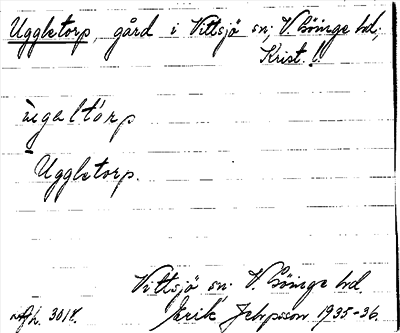 Uggletorp, gård i Vittsjö sn; V. Göinge hd;
Krist. l.
ùgəltórp
Uggletorp.
Vittsjö sn. V. Göinge hd
3018. Erik Jeppsson 1935-36.